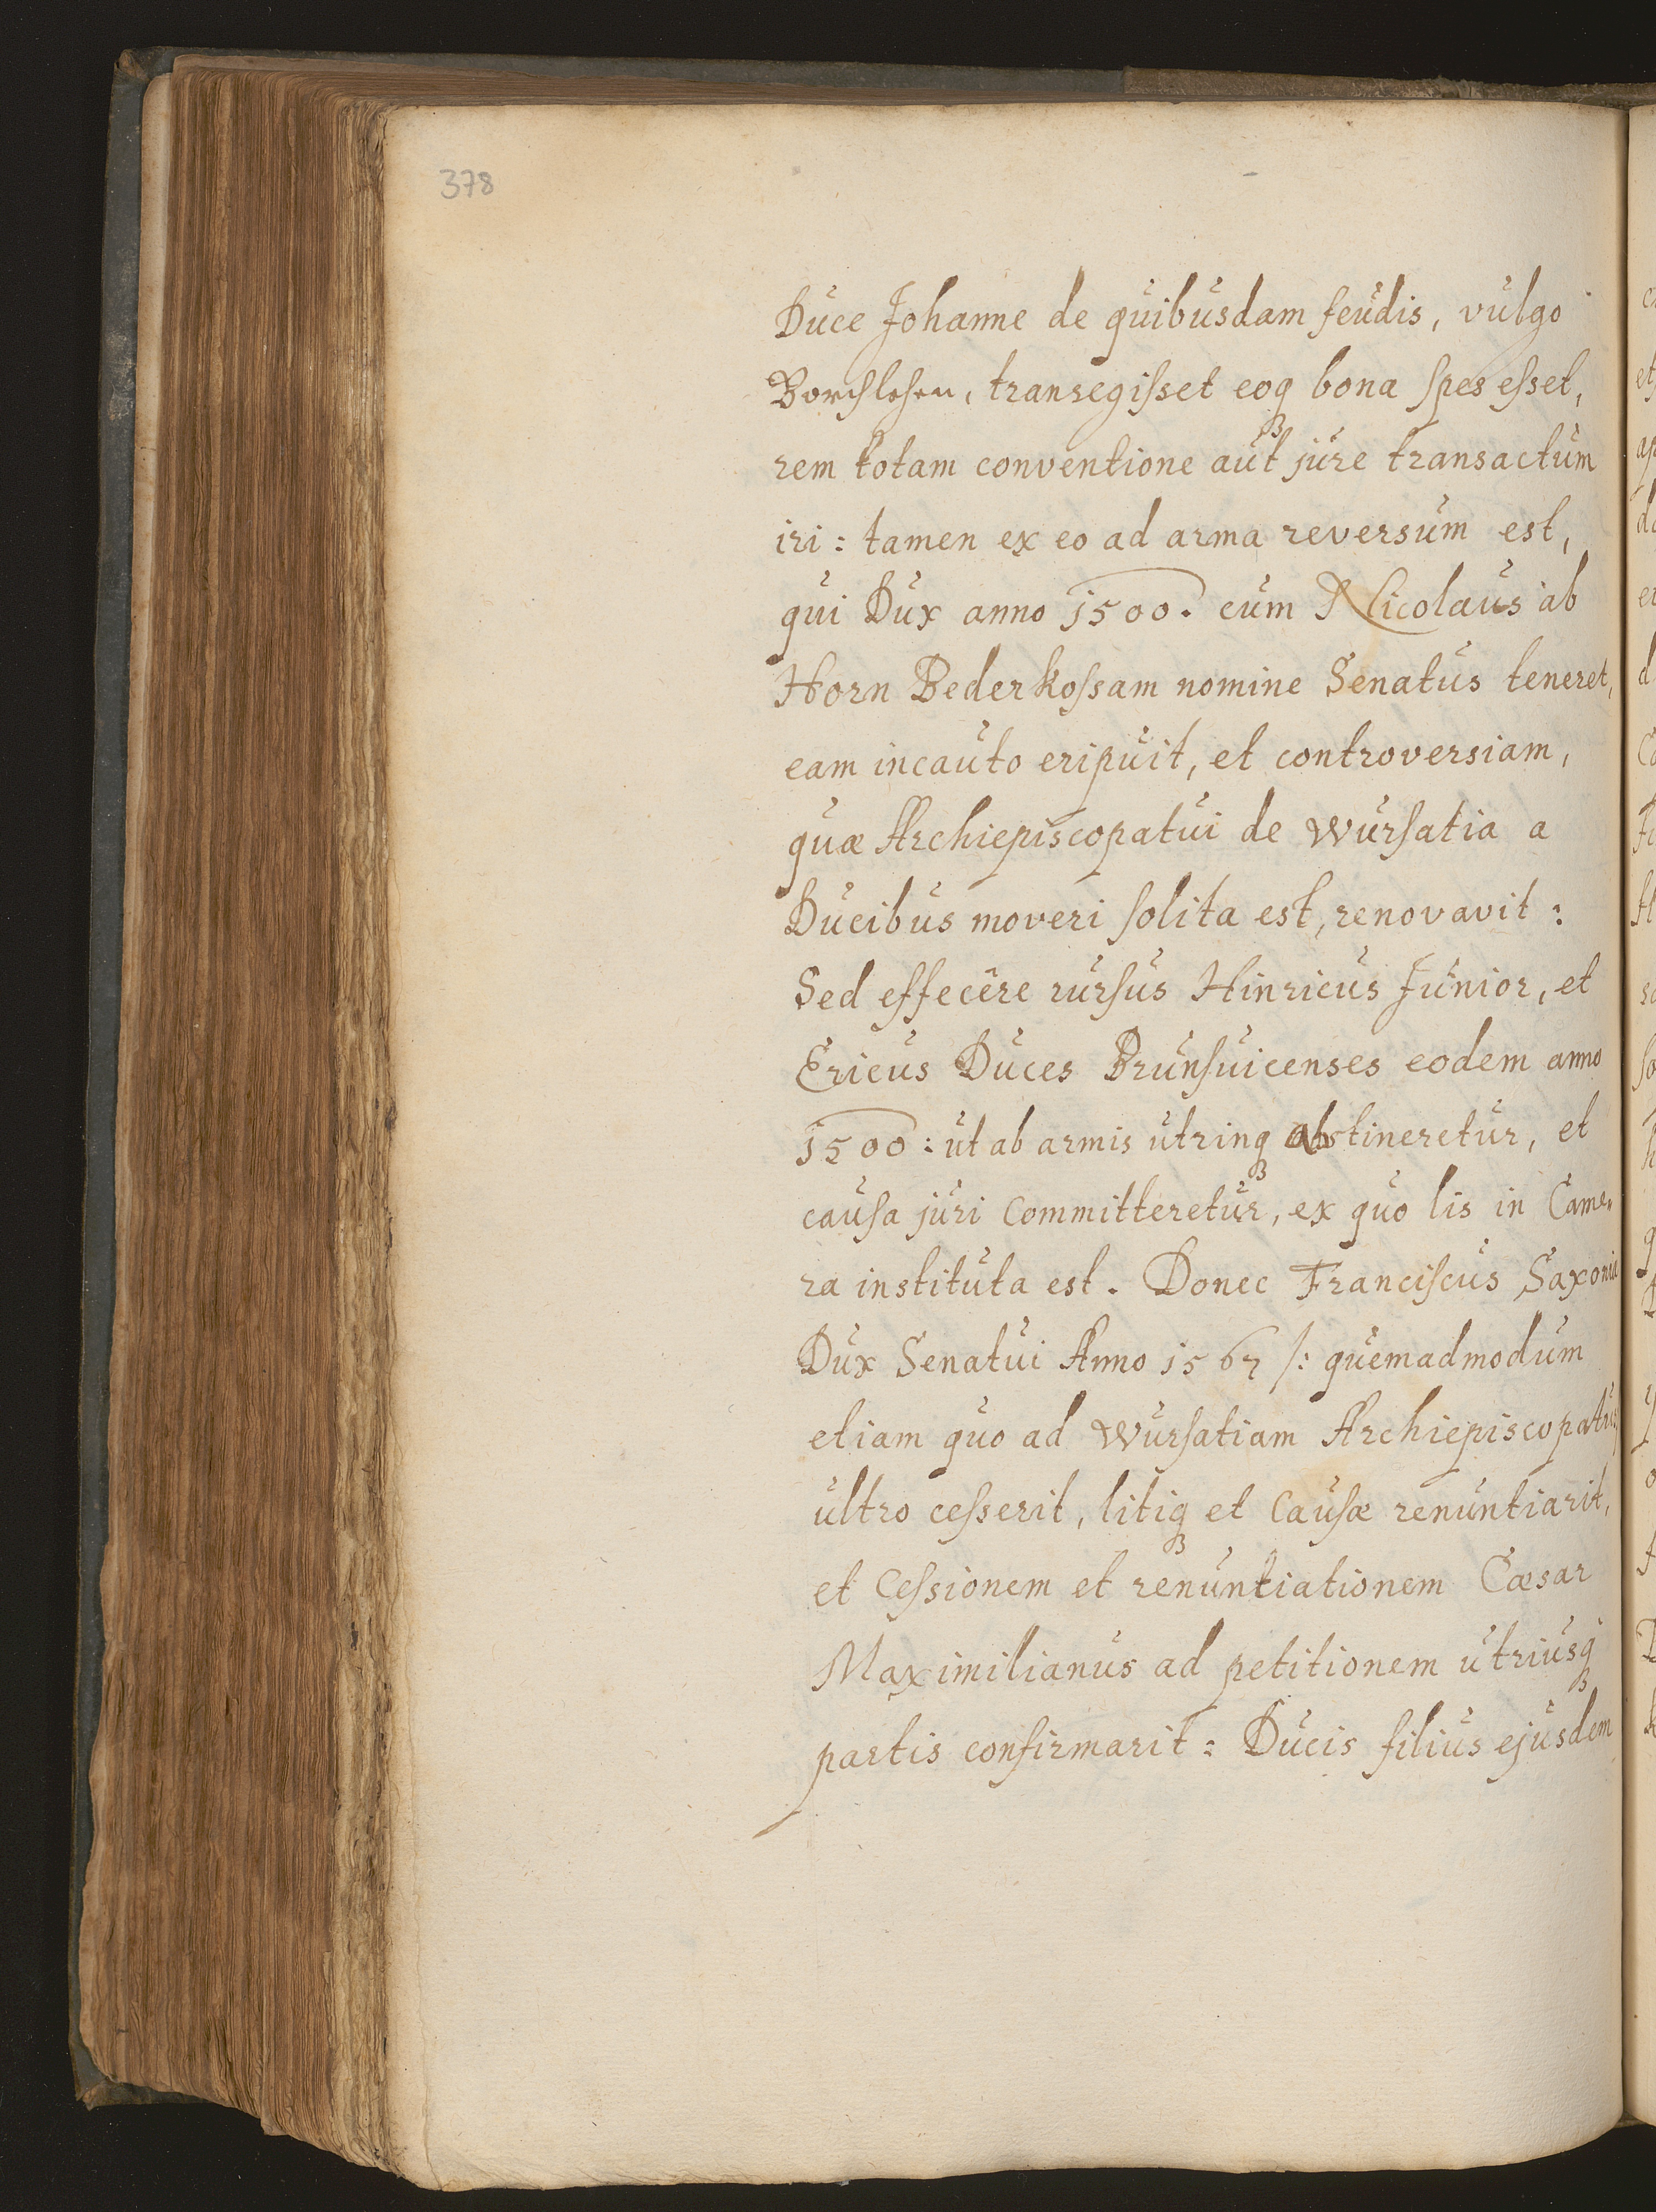 378
Duce Johanne de quibusdam feudis, vulgo
Borchlehen, transegisset eoq₃ bona spes esset,
rem totam conventione aut jure transactum
iri: tamen ex eo ad arma reversum est,
qui Dux anno 1500. cum Nicolaus ab
Horn Bederkossam nomine Senatus teneret,
eam incauto eripuit, et controversiam,
quæ Archiepiscopatui de Wursatia a
Ducibus moveri solita est, renovavit:
Sed effecêre rursus Hinricus Junior, et
Ericus Duces Brunsuicenses eodem anno
1500: ut ab armis utrinq₃ abstineretur, et
causa juri Committeretur, ex quo lis in Came,
ra instituta est. Donec Franciscus Saxoniæ
Dux Senatui Anno 1567 /: quemadmodum
etiam quo ad Wursatiam Archiepiscopatui
ultro cesserit, litiq₃ et Causæ renuntiarit,
et Cessionem et renuntiationem Cæsar
Maximilianus ad petitionem utriusq₃
partis confirmarit: Ducis filius ejusdem